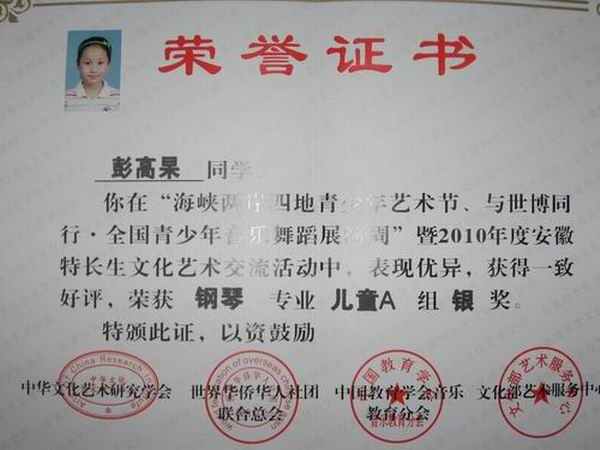 荣誉证书
彭高杲 同学
你在“海峡两岸四地青少年艺术节、与世博同
行·全国青少年音乐舞蹈展演周”暨2010年度安徽
特长生文化艺术交流活动中，表现优异，获得一致
好评，荣获 钢琴 专业 儿童A 组 银 奖。
特颁此证，以资鼓励
中华文化艺术研究学会 世界华侨华人社团 中国教育学会音乐 文化部艺术服务中心
联合总会 教育分会